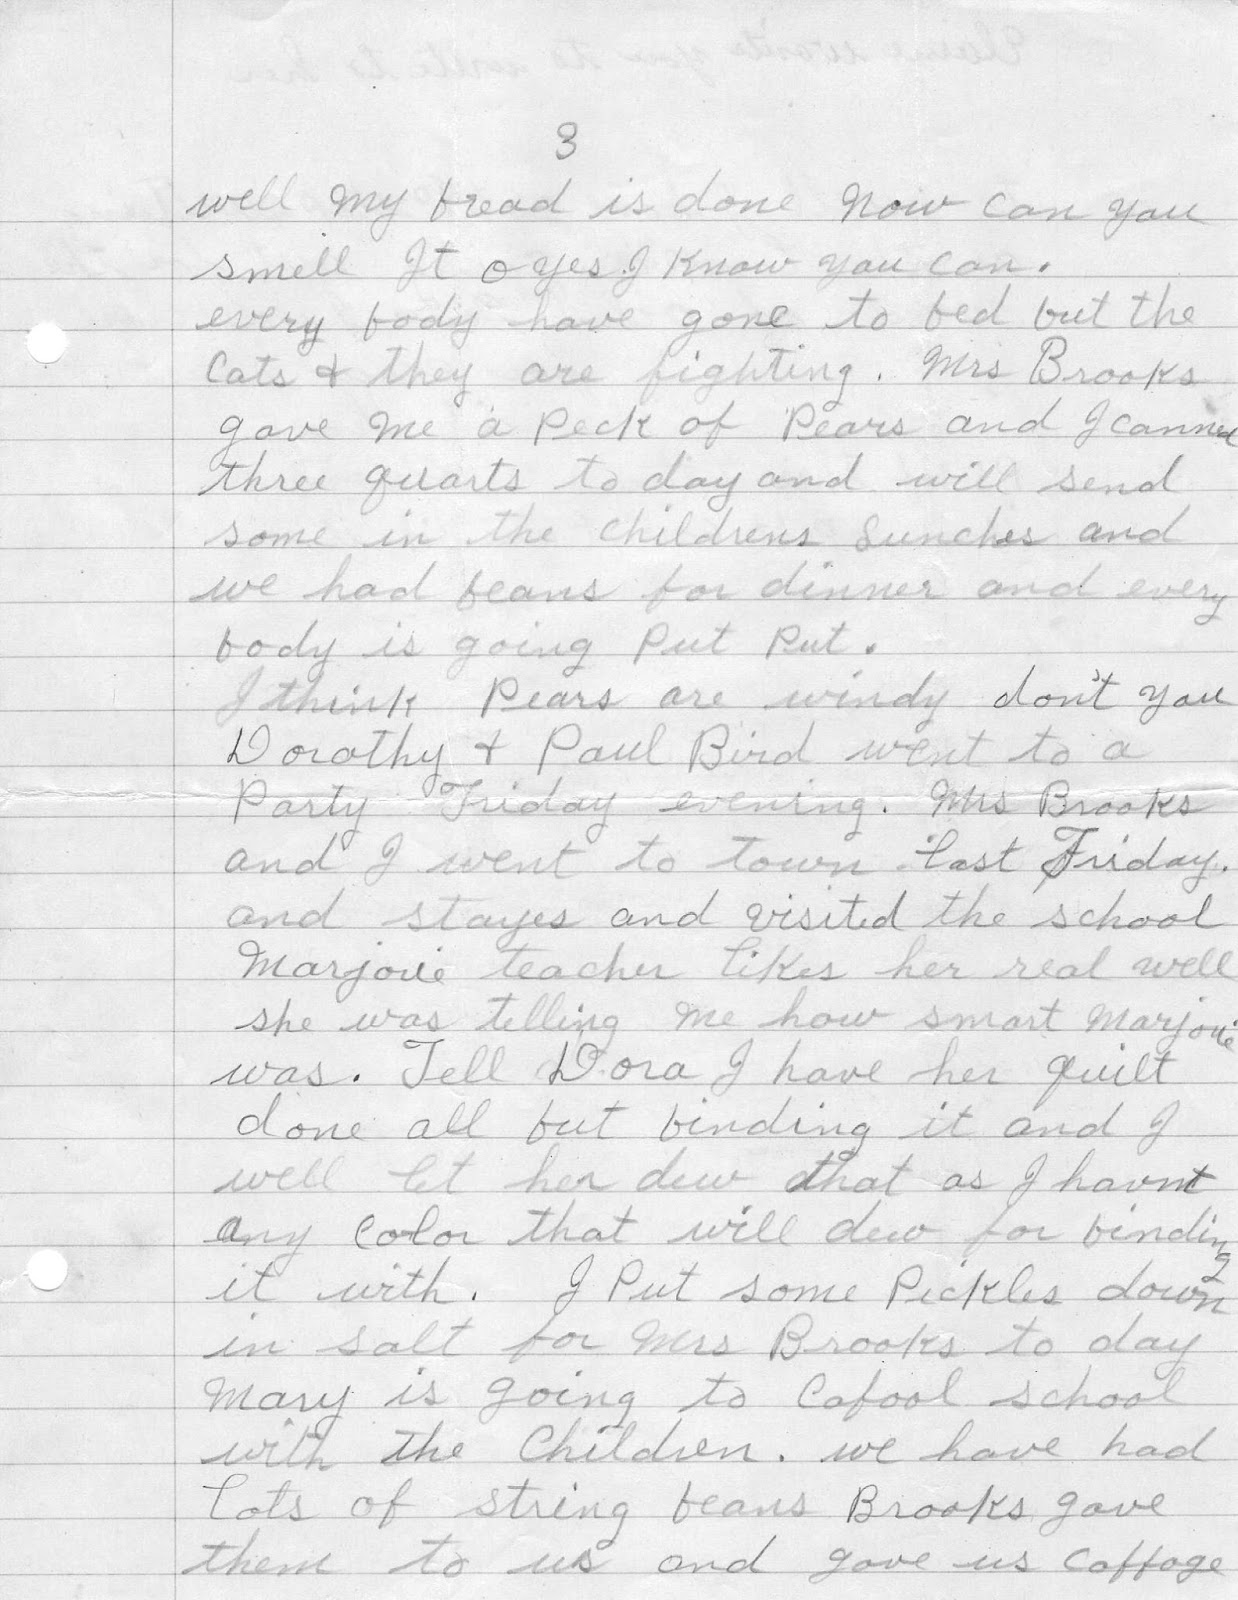 3
well my bread is done now can you
smell It o yes I know you can.
every body have gone to bed but the
Cats & they are fighting. Mrs Brooks
gave me a Peck of Pears and I canned
three quarts to day and will send
some in the childrens Lunches and
we had beans for dinner and every
body is going Put Put.
I think Pears are windy don't you
Dorothy & Paul Bird went to a
Party Friday evening. Mrs Brooks
and I went to town last Friday.
and stayes and visited the school
Marjorie teacher likes her real well
she was telling me how smart Marjorie
was. Tell Dora I have her quilt
done all but binding it and I
well let her dew that as I havnt
any color that will dew for binding
it with. I Put some Pickles down
in salt for Mrs Brooks to day
Mary is going to Cabool school
with the Children. we have had
lots of string beans Brooks gave
them to us and gave us cabbage